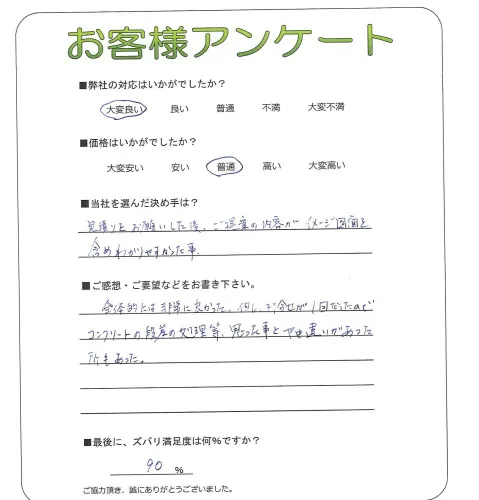 お客様アンケート
■弊社の対応はいかがでしたか？
大変良い 良い 普通 不満 大変不満
■価格はいかがでしたか？
大変安い 安い 普通 高い 大変高い
■当社を選んだ決め手は？
見積りをお願いした後、ご提案の内容がイメージ図面を
含めわかりやすかった事。
■ご感想・ご要望などをお書き下さい。
全体的には非常に良かった。但し、お打合せが1回だったので
コンクリートの段差の処理等、思った事と 違いがあった
所もあった。
■最後に、ズバリ満足度は何%ですか？
90 %
ご協力頂き、誠にありがとうございました。